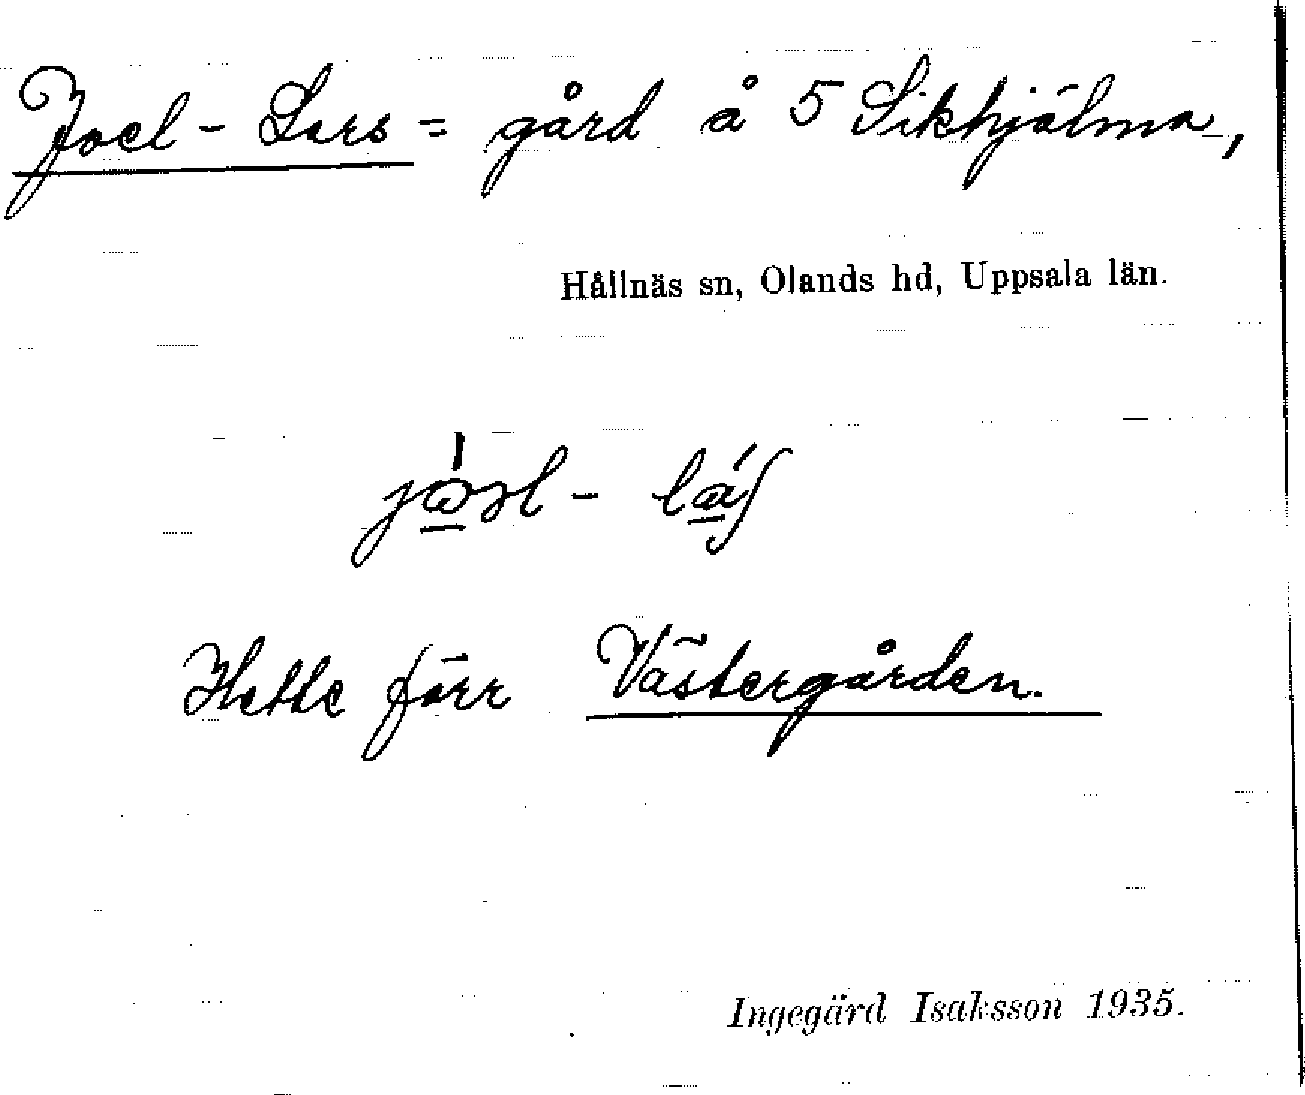 Joel-Lars = gård å 5 Sikhjälma,
Hållnäs sn, Olands hd, Uppsala län.
Hette förr Västergården.
Ingegärd Isaksson 1935.